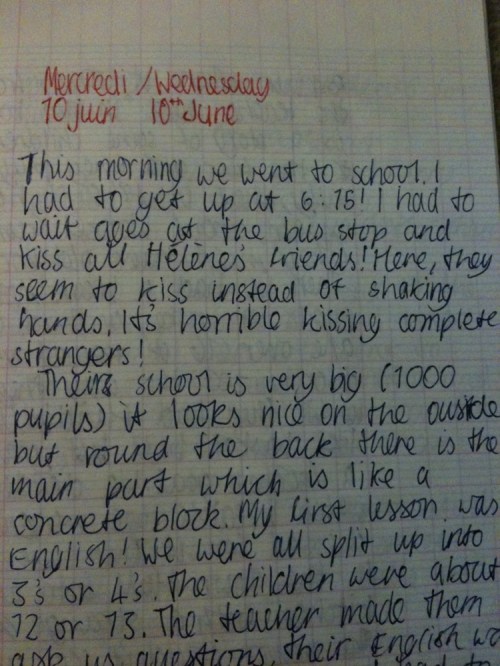 Mercredi / Wednesday
10 juin 10th June
This morning we went to school. I
had to get up at 6:15! I had to
wait ages at the bus stop and
kiss all Hélène's friends! Here, they
seem to kiss instead of shaking
hands. It's horrible kissing complete
strangers!
Their school is very big (1000
pupils) it looks nice on the ouside
but round the back there is the
main part which is like a
concrete block. My first lesson was
English! We were all split up into
3's or 4's. The children were about
12 or 13. The teacher made them
ask us questions, their English